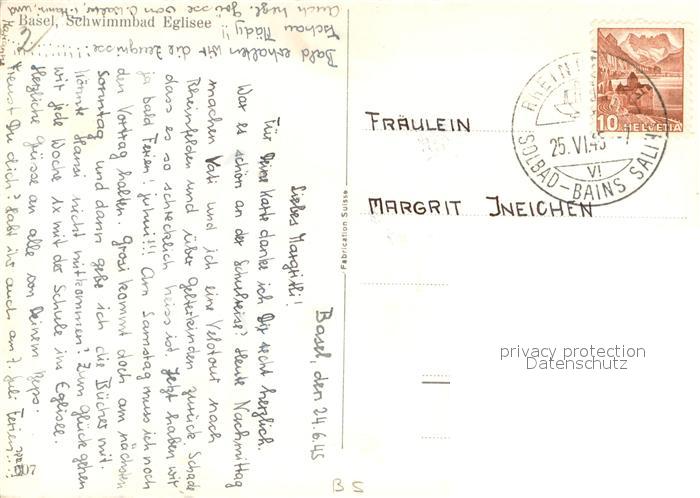 Basel, Schwimmbad Eglisee
Basel, den 24.6.45
Liebes Margritli!
Für Deine Karte danke ich Dir recht herzlich.
War es schön an der Schulreise? Heute Nachmittag
machen Vati und ich eine Velotour nach
Rheinfelden und über Gelterkinden zurück. Schade,
dass es so schrecklich heiss ist. Jetzt haben wir
ja bald Ferien! juhui!!! Am Samstag muss ich noch
den Vortrag halten. Grosi kommt doch am nächsten
Sonntag und dann gebe ich die Bücher mit.
Könnte Hansi nicht mitkommen? Zum Glück gehen
wir jede Woche 1x mit der Schule ins Eglisee.
Herzliche Grüsse an alle von Deinem Beps.
Freust Du dich? Habt ihr auch am 7. Juli Ferien...!
Bald erhalten wir die Zeugnisse!!!!!
Tschau Mädy!!
Auch herzl. Grüsse von
Fabrication Suisse
FRÄULEIN
MARGRIT INEICHEN
10 HELVETIA
RHEIN
25.VI.45
VI
SOLBAD-BAINS SALIN
privacy protection
Datenschutz
BS
07